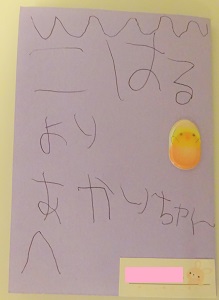 こはる
より
あかりちゃん
へ